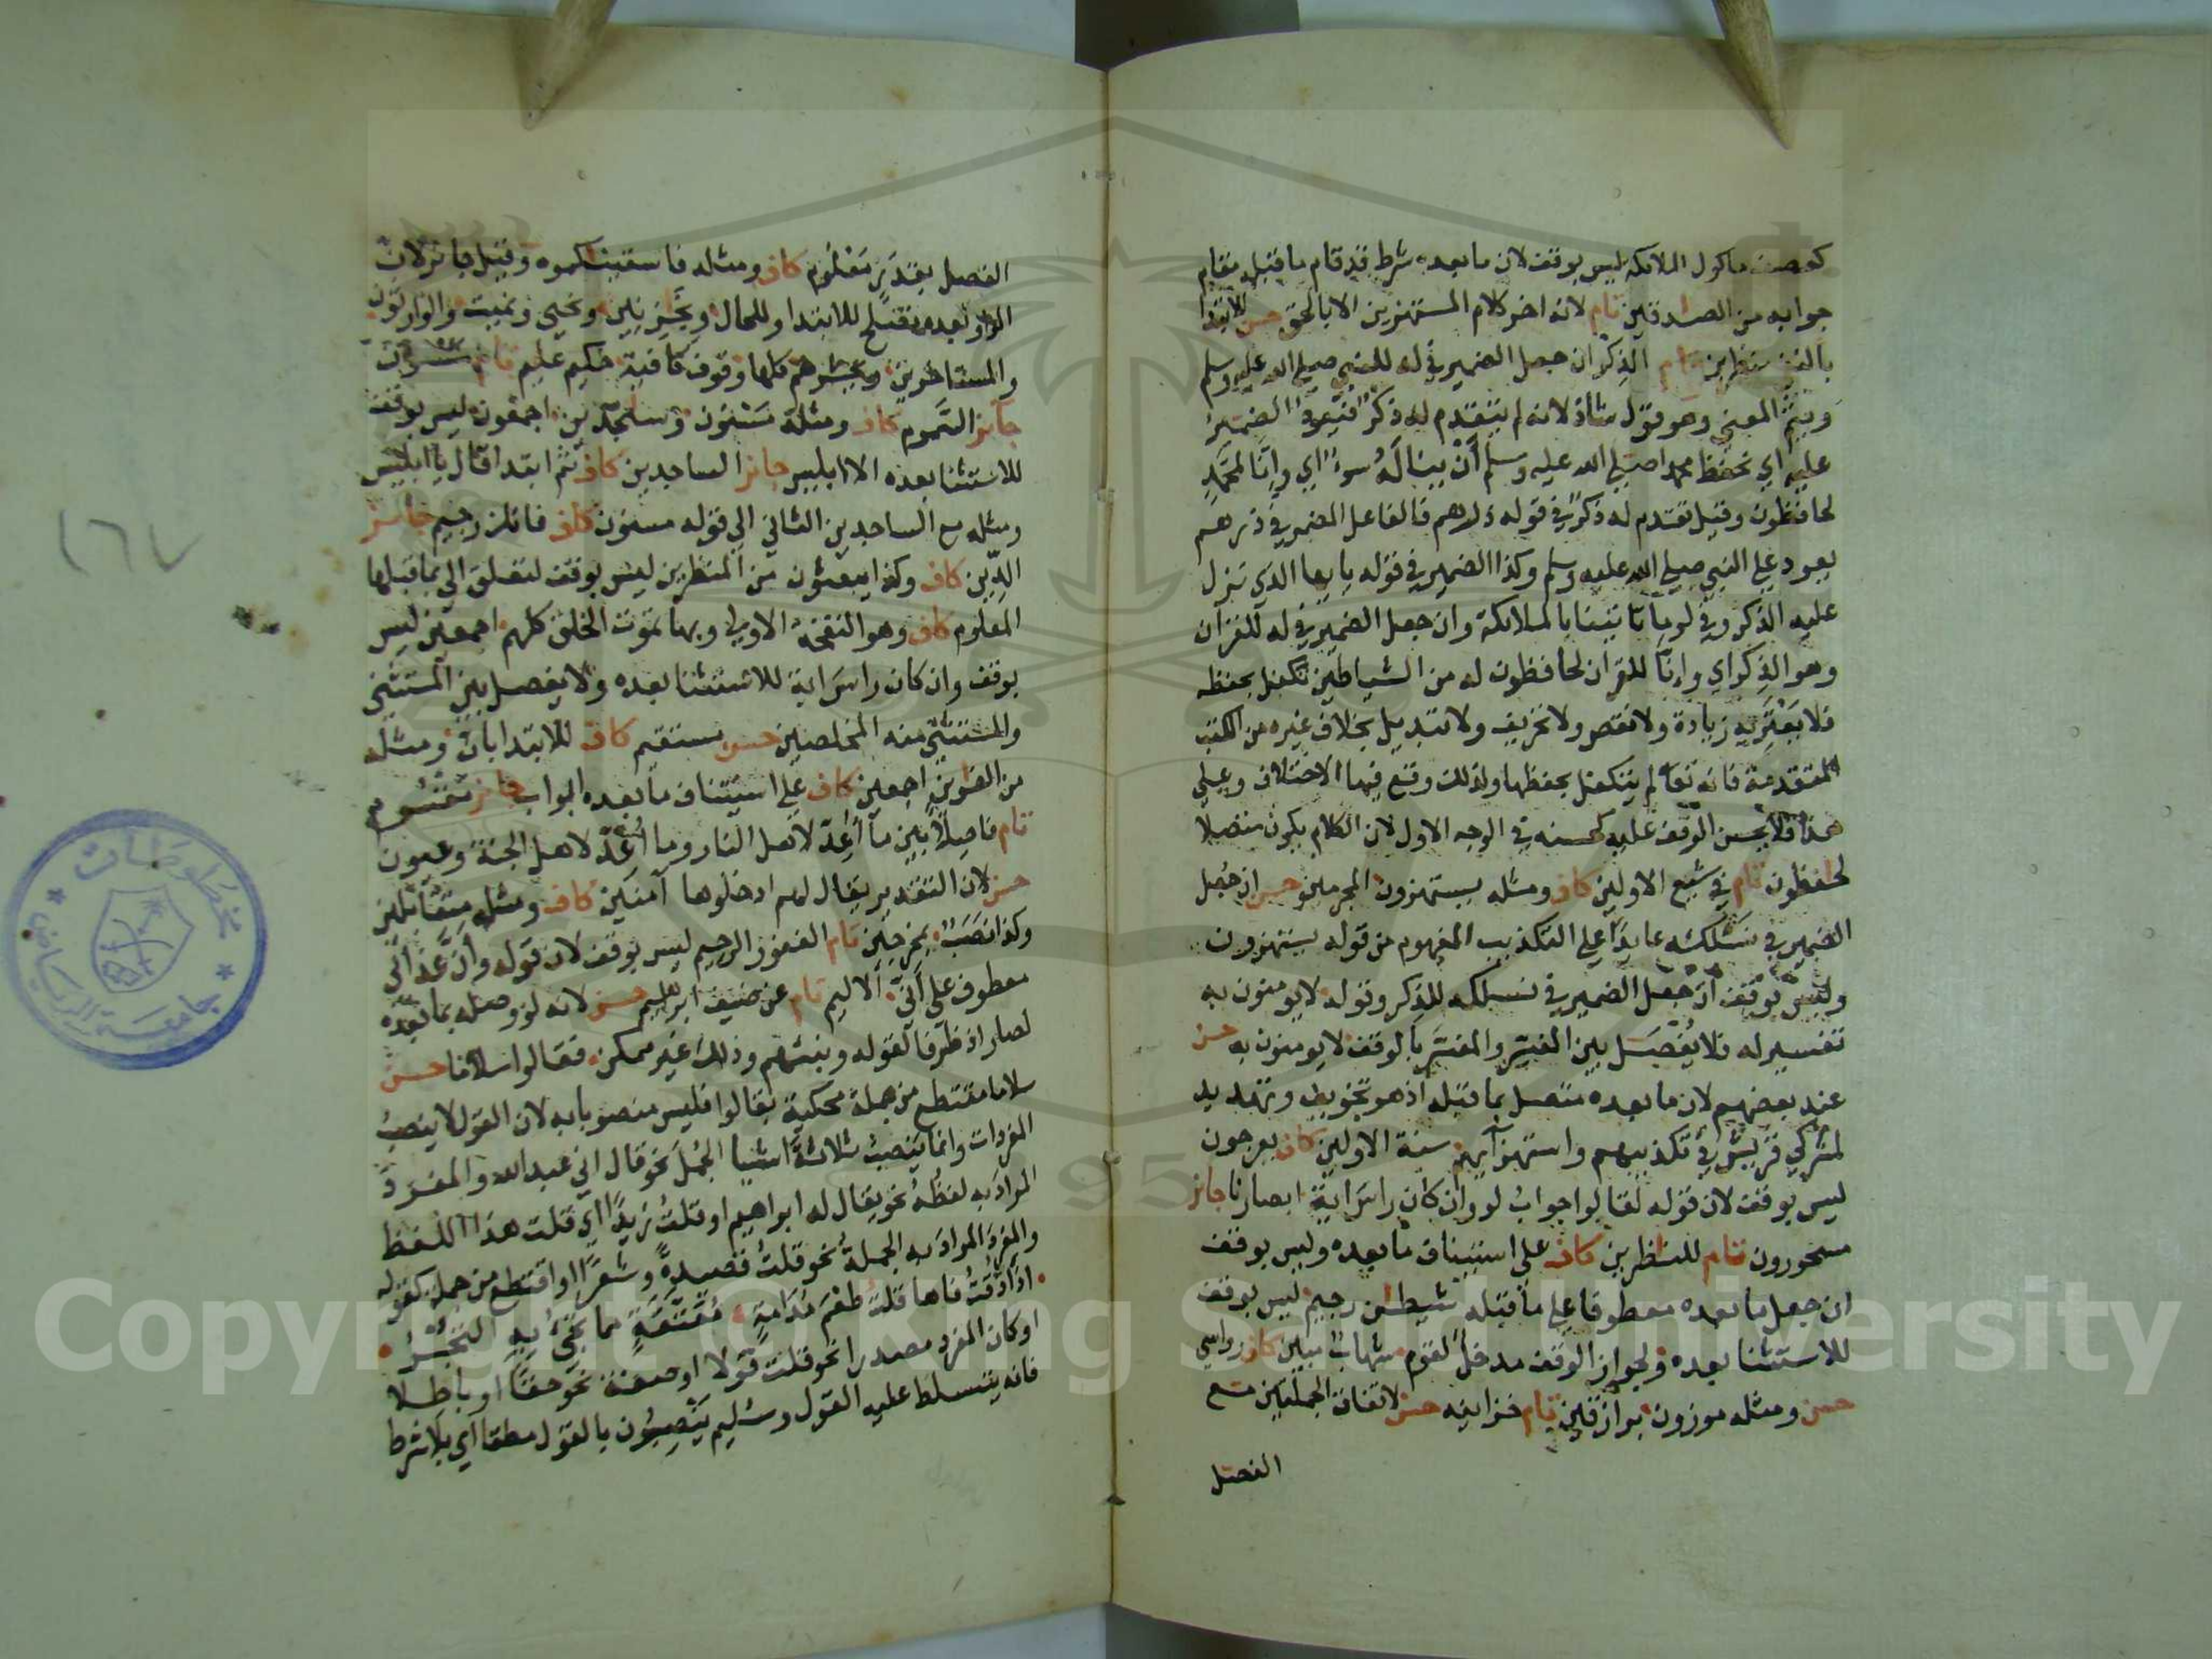 كعصف ماكول الملائكة ليس بوقف لان ما بعده شرط قد قام ما قبله مقام
جوابه من الصادقين تام لانه اخر كلام المستهزئين الا بالحق حسن للابتداء
بالنفي منظرين تام الذكر ان جعل الضمير في له للنبي صلى الله عليه وسلم
ويتم المعنى وهو قول شاذ لانه لم يتقدم له ذكر فيعود الضمير
عليه اي نحفظ محمدا صلى الله عليه وسلم أن يناله سوء اي وانا لمحمد
لحافظون وقيل تقدم له ذكر في قوله ذرهم فالفاعل المضمر في ذرهم
يعود على النبي صلى الله عليه وسلم وكذا الضمير في قوله يا ايها الذي نزل
عليه الذكر وفي لو ما تاتينا بالملائكة وان جعل الضمير في له للقرآن
وهو الذكر اي وإنا للقرآن لحافظون له من الشياطين تكفل بحفظه
فلا يعتريه زيادة ولا نقص ولا تحريف ولا تبديل بخلاف غيره من الكتب
المتقدمة فانه تعالى لم يتكفل بحفظها ولذلك وقع فيها الاختلاف وعلى
هذا فلا يحسن الوقف عليه كحسنه في الوجه الاول لان الكلام يكون متصلا
لحفظون تام في شيع الاولين كاف ومثله يستهزون المجرمين حسن ان جعل
الضمير في نسلكه عايدا على التكذيب المفهوم من قوله يستهزون
وليس بوقف ان جعل الضمير في نسلكه للذكر وقوله لا يومنون به
تفسير له فلا يفصل بين المفسر والمفسر بالوقف لا يومنون به حسن
عند بعضهم لان ما بعده متصل بما قبله اذ هو تخويف وتهديد
لمشركي قريش في تكذيبهم واستهزآيهم سنة الاولين كاف يعرجون
ليس بوقف لان قوله لقالوا جواب لو وان كان راس اية ابصارنا جائز
مسحورون تام للنظرين كاف على استيناف ما بعده وليس بوقف
ان جعل ما بعده معطوفا على ما قبله شيطن رجيم ليس بوقف
للاستثنا بعده ولجواز الوقف مدخل لقوم شهاب مبين كاف رواسي
حسن ومثله موزون برازقين تام خزاينه حسن لاتفاق الجملتين مع
الفصل
الفصل بقدر معلوم كاف ومثله فاسقيناكموه وقيل جائز لان
الواو بعده تصلح للابتدا وللحال بخزنين ونحيي ونميت والوارثون
والمستاخرين ويحشرهم كلها وقوف كافية حكيم عليم تام مسنون
جائز السموم كاف ومثله مسنون وسٰجدين اجمعون ليس بوقف
للاستثنا بعده الا ابليس جائز الساجدين كاف ثم ابتدا قال يا ابليس
ومثله مع الساجدين الثاني الى قوله مسنون كاف فانك رجيم جائز
الدين كاف وكذا يبعثون من المنظرين ليس بوقف لتعلق الى بما قبلها
المعلوم كاف وهو النفخة الاولى وبها تموت الخلق كلهم اجمعين ليس
بوقف وان كان راس اية للاستثنا بعده ولا يفصل بين المستثنى
والمستثنى منه المخلصين حسن مستقيم كاف للابتدا بان ومثله
من الغاوين اجمعين كاف على استيناف ما بعده ابواب جائز مقسوم
تام فاصلا بين ما أعد لاهل النار وما أعد لاهل الجنة وعيون
حسن لان التقدير يقال لهم ادخلوها آمنين كاف ومثله متقابلين
وكذا نصب بمخرجين تام الغفور الرحيم ليس بوقف لان قوله وأن عذابي
معطوف على أني الاليم تام عن ضيف ابرهيم حسن لانه لو وصله بما بعده
لصار اذ ظرفا لقوله ونبئهم وذلك غير ممكن فقالوا سلاما حسن
سلاما مقتطع من جملة محكية بقالوا فليس منصوبا به لان القول لا ينصب
المفردات وانما ينصب ثلاثة اشيا الجمل نحو قال اني عبد الله والمفرد
المراد به لفظه نحو يقال له ابراهيم او قلت زيدا اي قلت هذا اللفظ
والمفرد المراد به الجملة نحو قلت قصيدة وشعرا او اقتطع من جملة كقوله
اذا ذقت فاها قلت طعم مدامة معتقة مما تجيء به التجر
او كان المفرد مصدرا نحو قلت قولا او صفته نحو حقا او باطلا
فانه يتسلط عليه القول وسليم ينصبون بالقول مطقا اي بلا شرط
١٦٧
مخطوطات
جامعة الرياض
Copyright © King Saud University